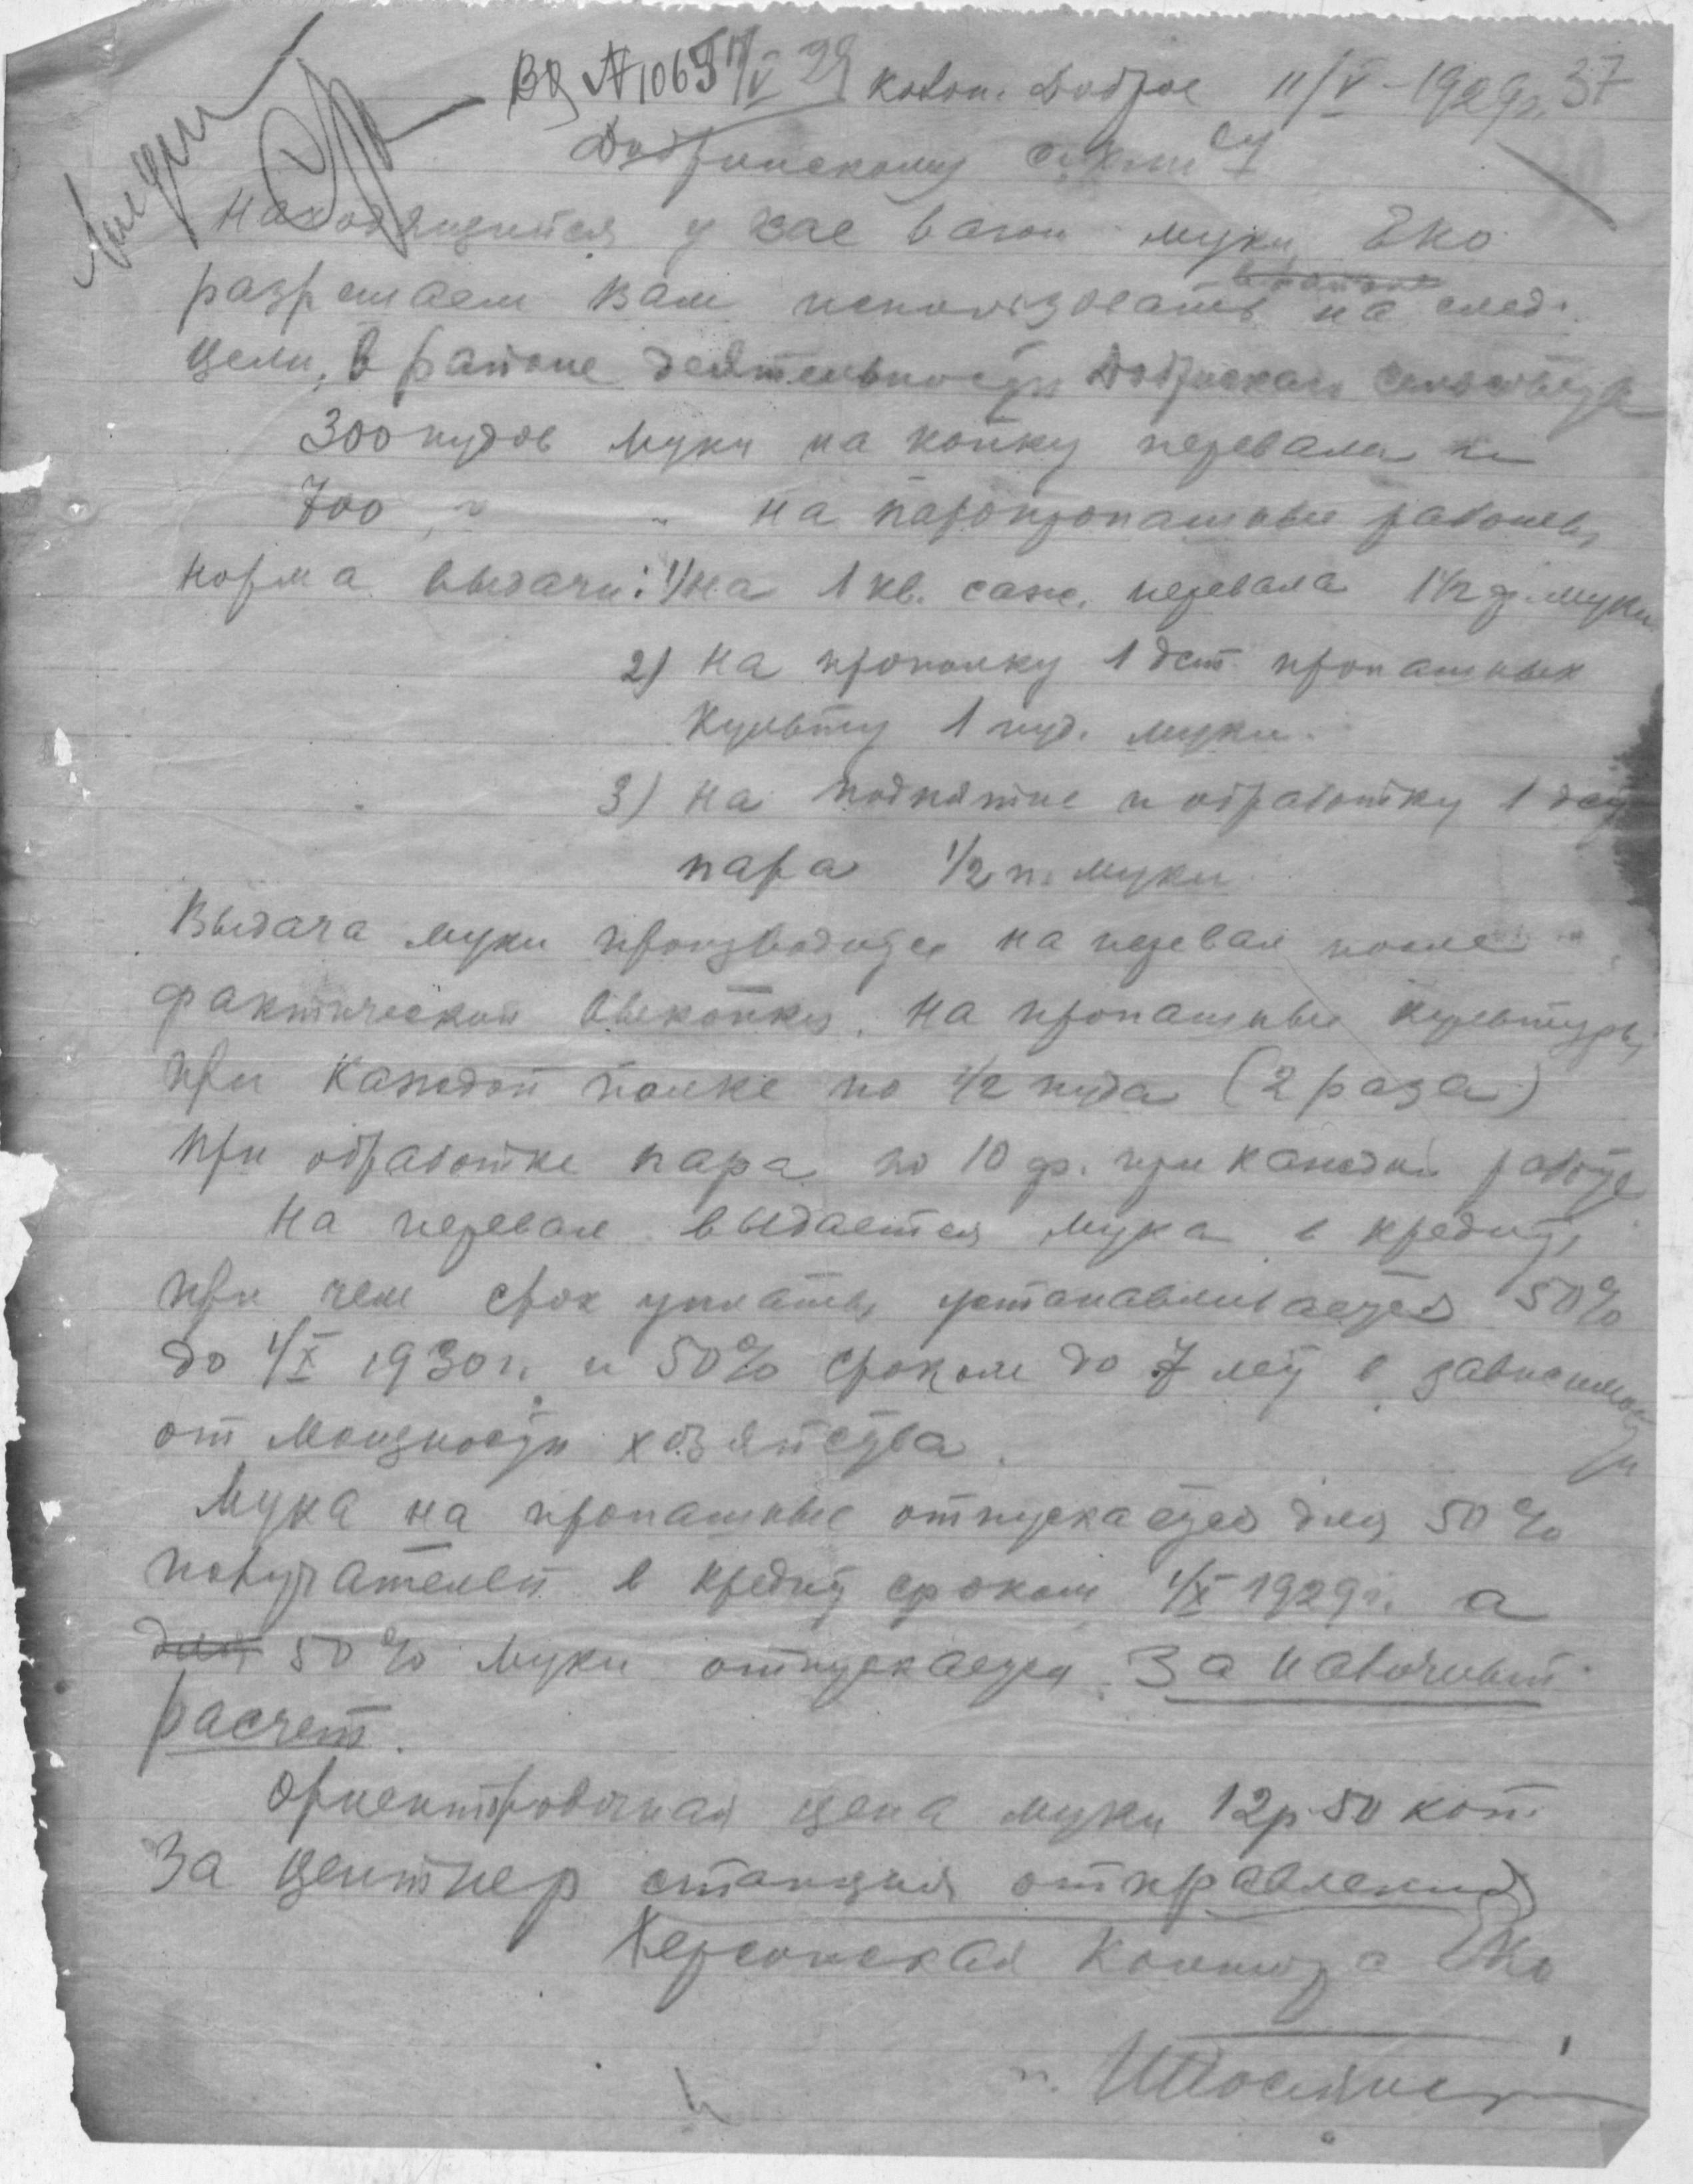 Вх №1065 11/V 29 колон. Доброе 11/V-1929г. 37
Добринскому с.х.
Находящийся у вас вагон муки ЕКО
разрешаем Вам использовать на след.
цели, в районе деятельности Добринскаго сельсовета
300 пудов муки на копку перевала и
700 " " на паропропашные работы,
норма выдачи: 1/ на 1 кв. саж. перевала 1 1/2 ф. муки
2) на прополку 1 дет пропашных
культур 1 пуд. муки.
3) на поднятие и обработку 1 дес
пара 1/2 п. муки
Выдача муки производится на перевал после
фактической выкопки. На пропашные культуры,
при каждой полке по 1/2 пуда (2 раза)
при обработке пара по 10 ф. при каждой работе
На перевал выдается мука в кредит,
при чем срок уплаты устанавливается 50%
до 1/X 1930г. и 50% сроком до 7 лет в зависимости
от мощности хозяйства.
Мука на пропашные отпускается для 50%
получателей в кредит сроком 1/X 1929г. а
для 50% муки отпускается за наличный
расчет.
Ориентировочная цена муки 12р 50 коп.
За центнер станция отправления
Херсонская Контора ЕКО